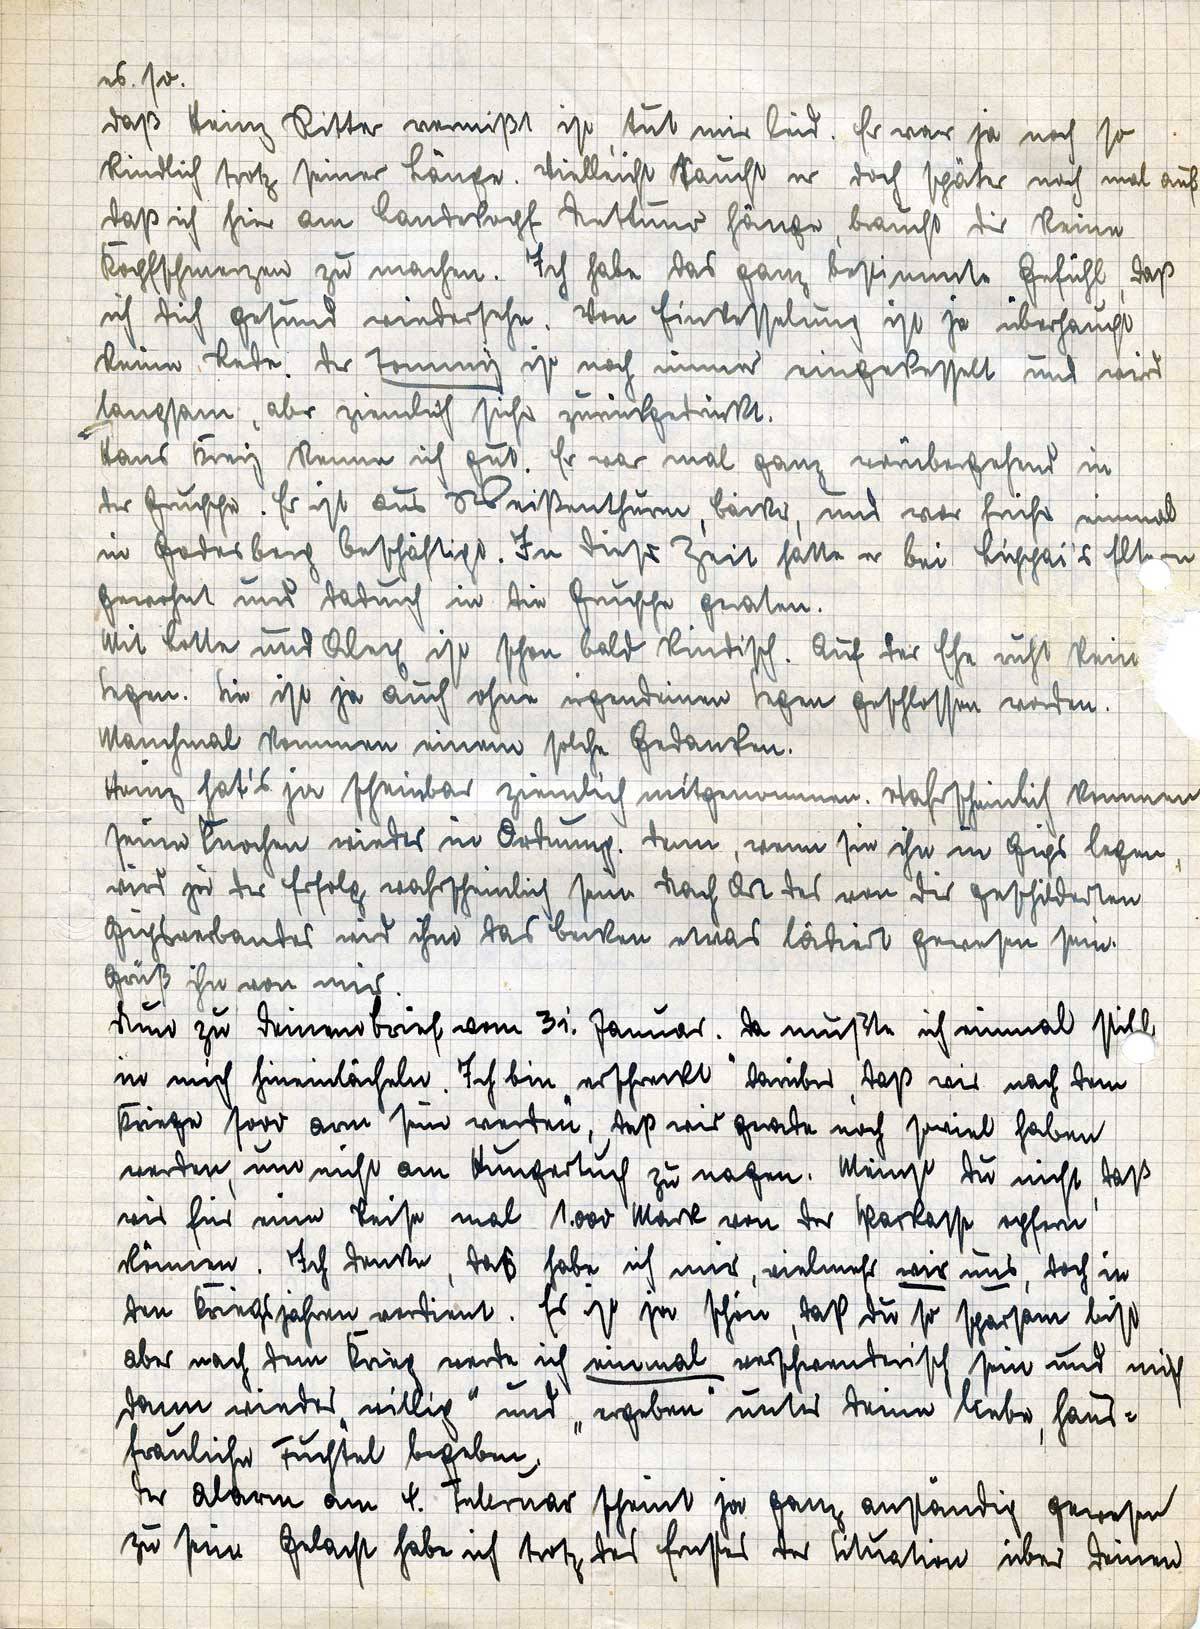 es so.
Daß Heinz Ritter vermißt ist, tut mir leid. Er war ja noch so
kindlich trotz seiner Länge. Vielleicht taucht er doch später noch mal auf
Daß ich hier am Landekopf Nettuno hänge, braucht dir keine
Kopfschmerzen zu machen. Ich habe das ganz bestimmte Gefühl, daß
ich dich gesund wiedersehe. Von Einkesselung ist ja überhaupt
keine Rede. Der Tommy ist noch immer eingekesselt und wird
langsam, aber ziemlich sicher zurückgedrückt.
Hans kenne ich gut. Er war mal ganz vorübergehend in
der Gruppe. Er ist aus Weißenthurm, Bäcker, und war früher einmal
in Godesberg beschäftigt. In dieser Zeit hatte er bei Eltern
gewohnt und dadurch in die Gruppe geraten.
Mit Lotte und ist schon bald kindisch. Auf der Ehe ruht kein
Segen. Sie ist ja auch ohne irgendeinen Segen geschlossen worden.
Manchmal kommen einem solche Gedanken.
Heinz hat's ja scheinbar ziemlich mitgenommen. Wahrscheinlich kommen
seine Knochen wieder in Ordnung. Denn, wenn sie ihn in Gips legen,
wird ja der Erfolg wahrscheinlich sein. Nach Art des von dir geschilderten
Gipsverbandes wird ihm das Becken etwas lädiert gewesen sein.
Grüß ihn von mir.
Nun zu deinem Brief vom 31. Januar. Da mußte ich einmal still
in mich hineinlächeln. Ich bin „erschreckt" darüber, daß wir nach dem
Kriege sooo arm sein werden", daß wir gerade noch soviel haben
werden, um nicht am Hungertuch zu nagen. Meinst du nicht, daß
wir für eine Reise mal 1.000 Mark von der Sparkasse opfern
können. Ich denke, daß habe ich mir, vielmehr wir uns, doch in
den Kriegsjahren verdient. Es ist ja schön, daß du so sparsam bist
aber nach dem Krieg werde ich einmal verschwenderisch sein und mich
dann wieder „willig" und „ergeben" unter deine liebe, haus=
frauliche Fuchtel begeben.
Der Alarm am 4. Februar scheint ja ganz anständig gewesen
zu sein. Gelacht habe ich trotz des Ernstes der Situation über deinen